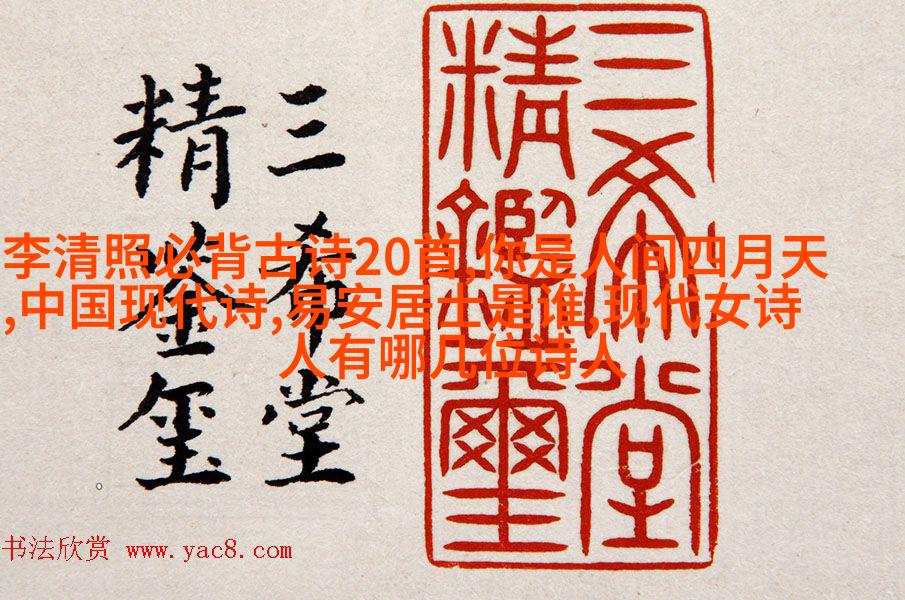 三希堂
精鉴玺
三希堂
精鑑璽
李清照必背古诗20首,你是人间四月天
,中国现代诗,易安居士是谁,现代女诗
人有哪几位诗人
书法欣赏 www.yac8.com